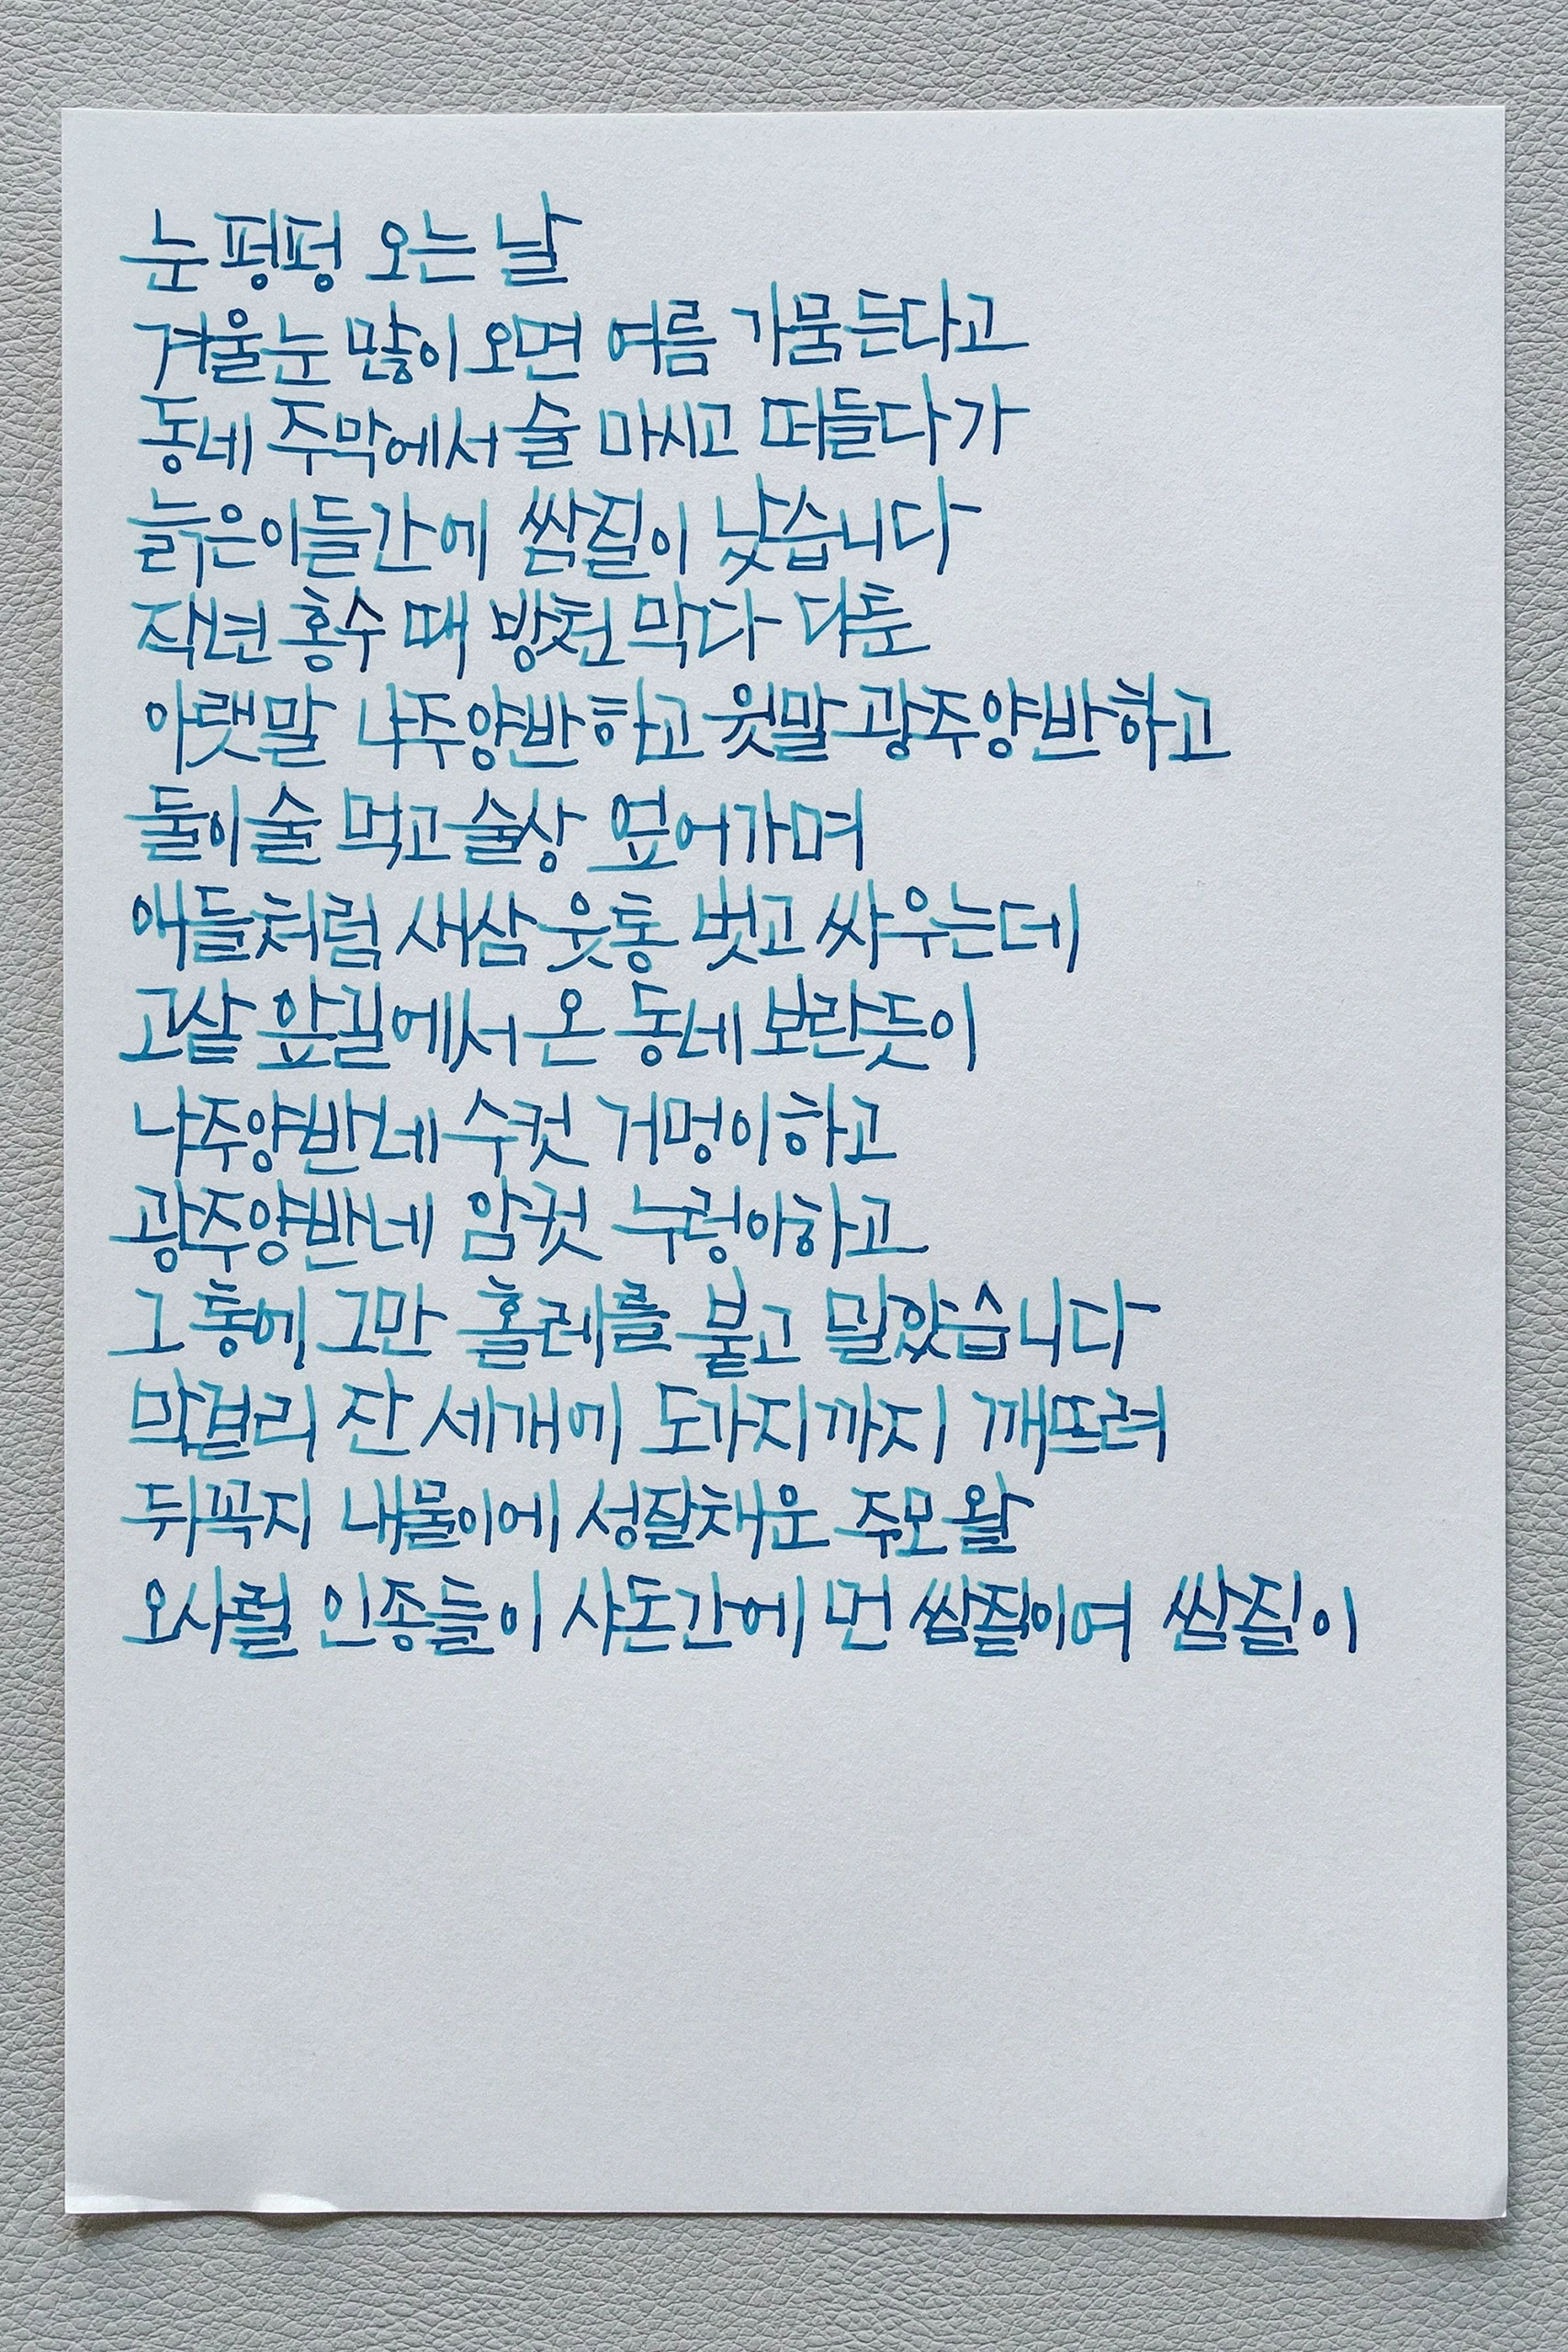 눈 펑펑 오는 날
겨울눈 많이 오면 여름 가뭄든다고
동네 주막에서 술 마시고 떠들다가
늙은이들간에 쌈질이 났습니다
작년 홍수 때 방천 막다 다툰
아랫말 나주양반하고 윗말 광주양반하고
둘이 술 먹고 술상 엎어가며
애들처럼 새삼 웃통 벗고 싸우는데
고샅 앞길에서 온 동네 보란듯이
나주양반네 수컷 거멍이하고
광주양반네 암컷 누렁이하고
그 통에 그만 홀레를 붙고 말았습니다
막걸리 잔 세개에 도가지까지 깨뜨려
뒤꼭지 내물이에 성질채운 주모 왈
오사럴 인종들이 사돈간에 먼 쌈질이여 쌈질이